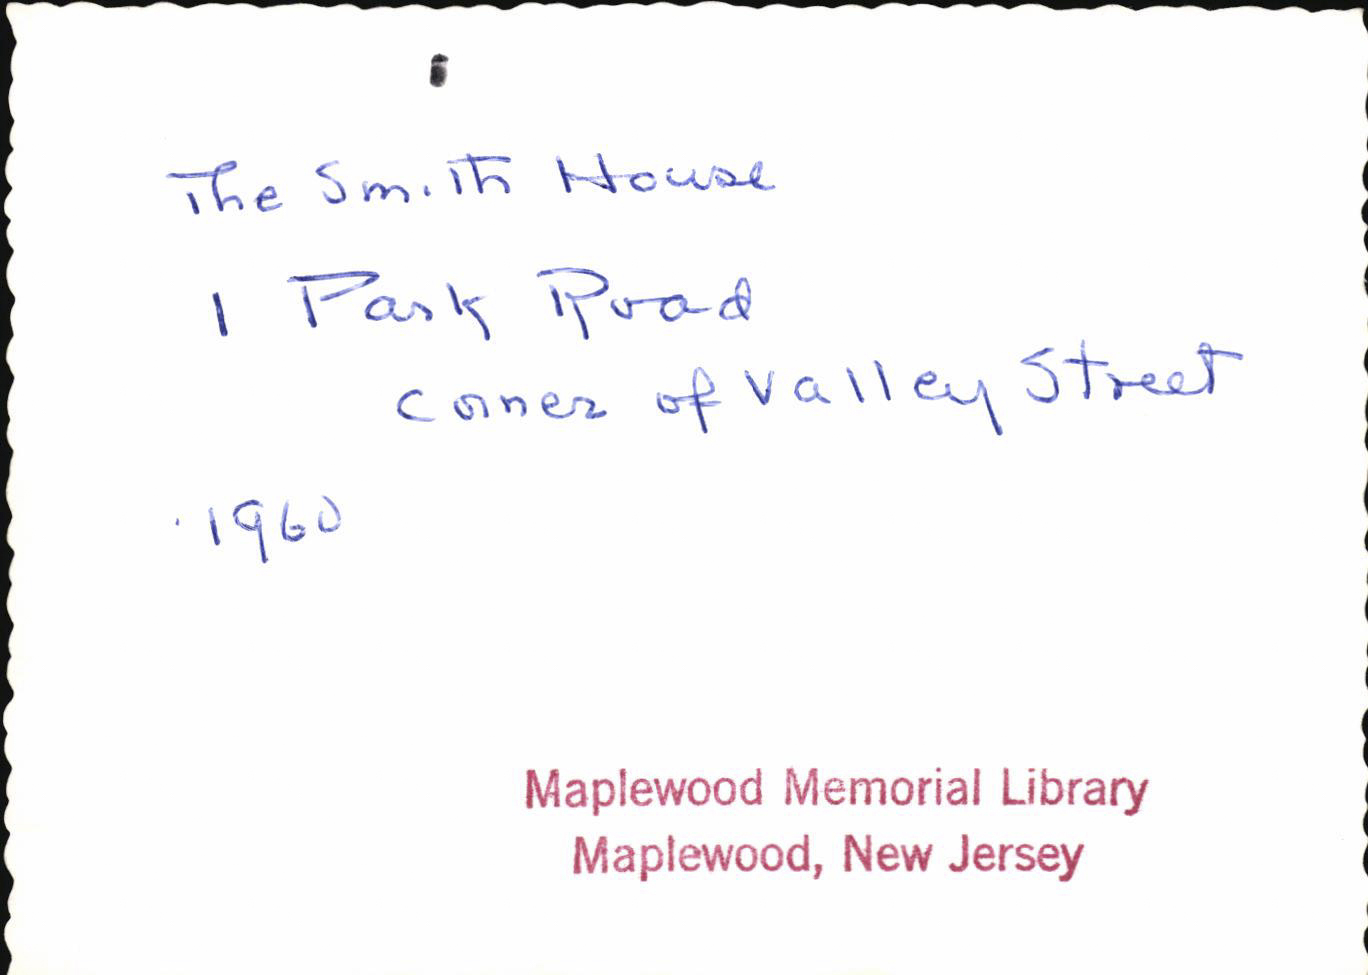 The Smith House
1 Park Road
corner of Valley Street
1960
Maplewood Memorial Library
Maplewood, New Jersey